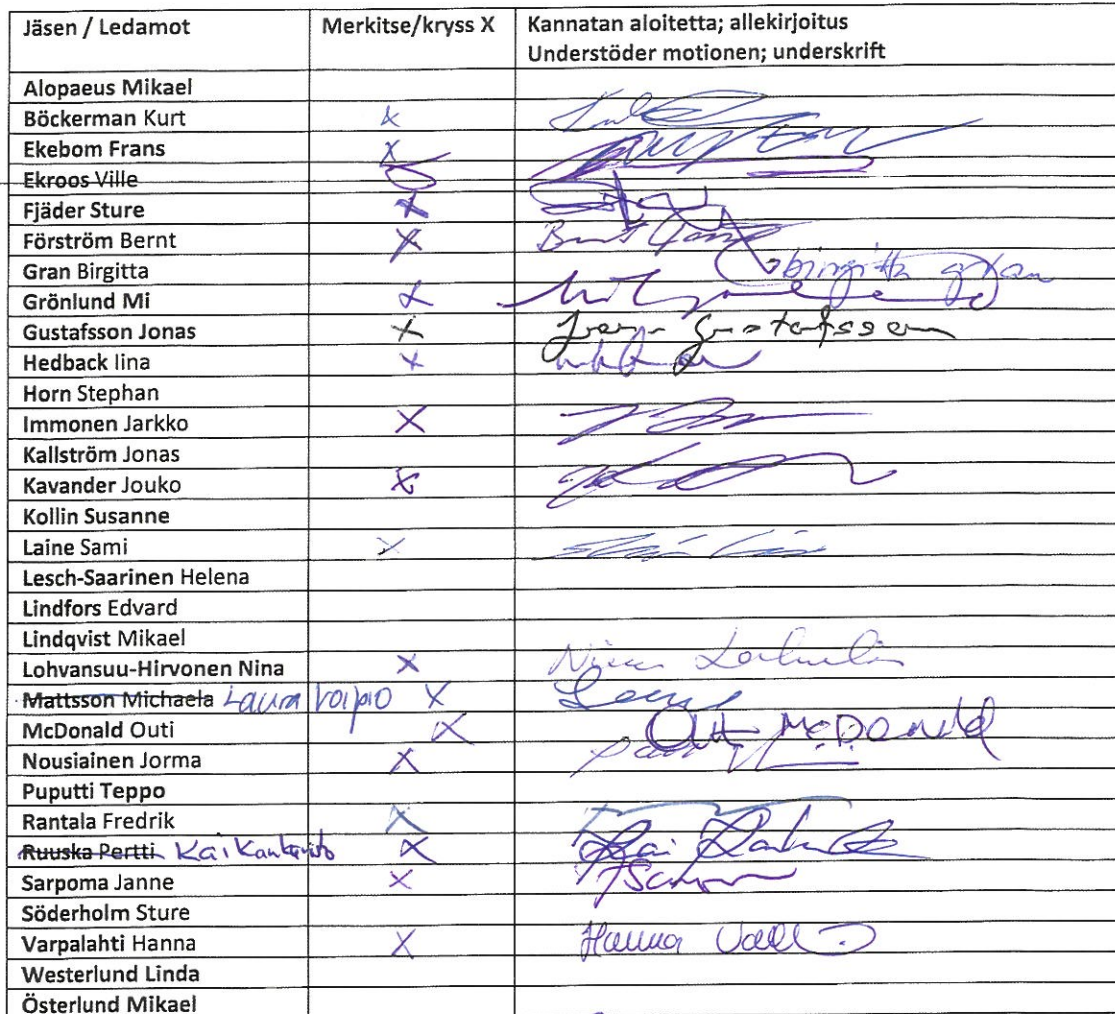 Jäsen / Ledamot Merkitse/kryss X Kannatan aloitetta; allekirjoitus
Understöder motionen; underskrift
Alopaeus Mikael
Böckerman Kurt X
Ekebom Frans X
Ekroos Ville
Fjäder Sture X
Förström Bernt X
Gran Birgitta birgitta gran
Grönlund Mi X
Gustafsson Jonas X Gustafsson
Hedback Iina X
Horn Stephan
Immonen Jarkko X
Kallström Jonas
Kavander Jouko X
Kollin Susanne
Laine Sami X
Lesch-Saarinen Helena
Lindfors Edvard
Lindqvist Mikael
Lohvansuu-Hirvonen Nina X Nina
Mattsson Michaela Laura Voipio X
McDonald Outi X Outi McDonald
Nousiainen Jorma X
Puputti Teppo
Rantala Fredrik X
Ruuska Pertti Kai X Kai
Sarpoma Janne X
Söderholm Sture
Varpalahti Hanna X Hanna
Westerlund Linda
Österlund Mikael